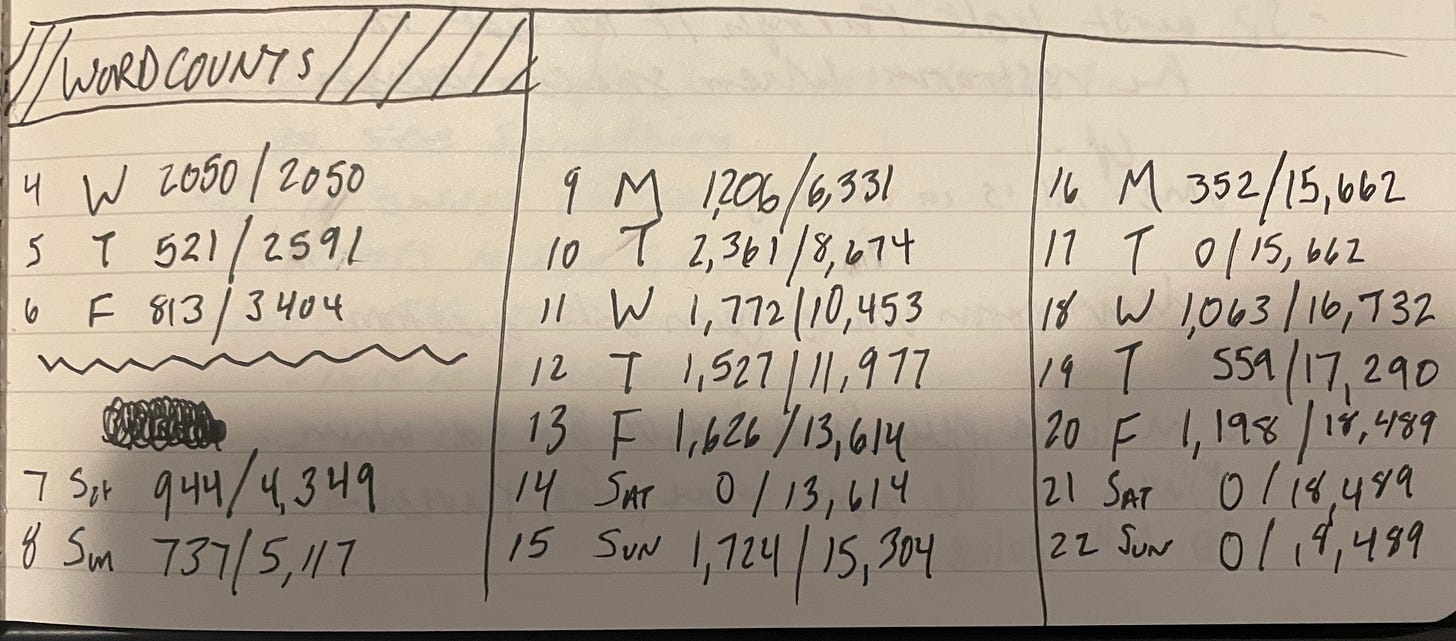 WORD COUNTS
4 W 2050/2050
5 T 521/2591
6 F 813/3404
7 Sat 944/4,349
8 Sun 737/5,117
9 M 1,206/6,331
10 T 2,361/8,674
11 W 1,772/10,453
12 T 1,527/11,977
13 F 1,626/13,614
14 SAT 0/13,614
15 SUN 1,724/15,304
16 M 352/15,662
17 T 0/15,662
18 W 1,063/16,732
19 T 559/17,290
20 F 1,198/18,489
21 SAT 0/18,489
22 SUN 0/18,489